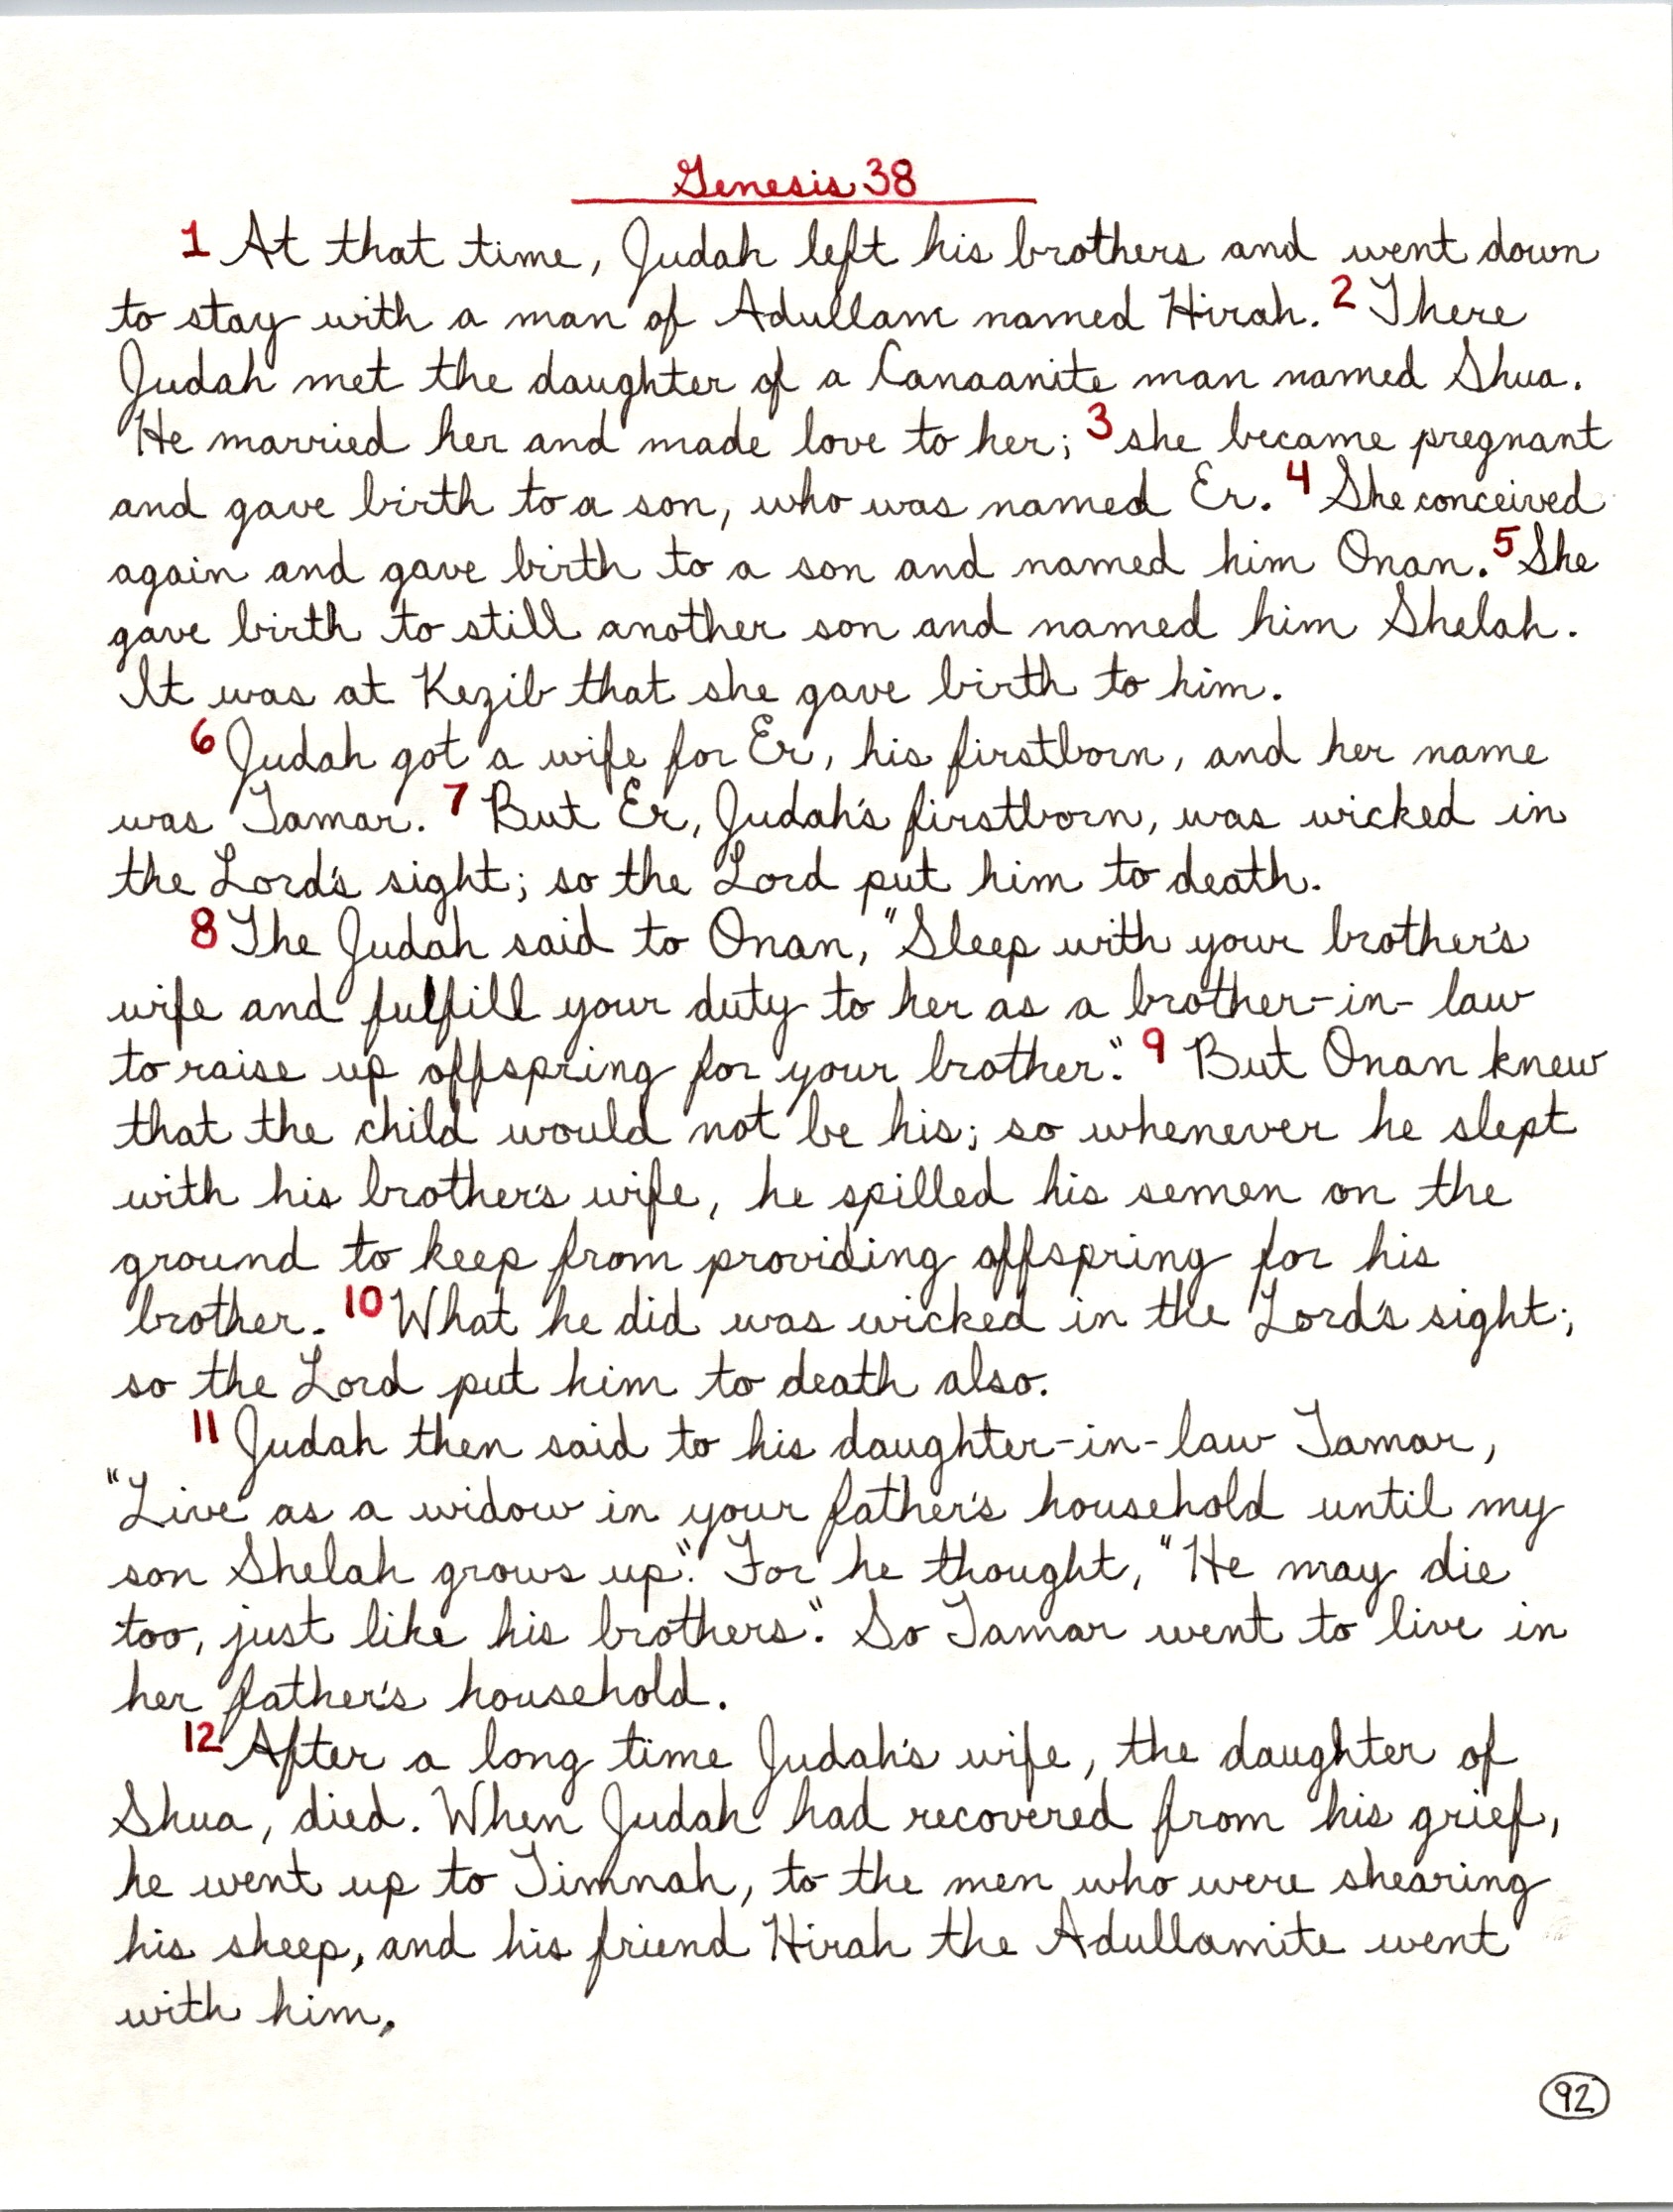 Genesis 38
1 At that time, Judah left his brothers and went down
to stay with a man of Adullam named Hirah. 2 There
Judah met the daughter of a Canaanite man named Shua.
He married her and made love to her; 3 she became pregnant
and gave birth to a son, who was named Er. 4 She conceived
again and gave birth to a son and named him Onan. 5 She
gave birth to still another son and named him Shelah.
It was at Kezib that she gave birth to him.
6 Judah got a wife for Er, his firstborn, and her name
was Tamar. 7 But Er, Judah's firstborn, was wicked in
the Lord's sight; so the Lord put him to death.
8 The Judah said to Onan, "Sleep with your brother's
wife and fulfill your duty to her as a brother-in-law
to raise up offspring for your brother." 9 But Onan knew
that the child would not be his; so whenever he slept
with his brother's wife, he spilled his semen on the
ground to keep from providing offspring for his
brother. 10 What he did was wicked in the Lord's sight;
so the Lord put him to death also.
11 Judah then said to his daughter-in-law Tamar,
"Live as a widow in your father's household until my
son Shelah grows up." For he thought, "He may die
too, just like his brothers." So Tamar went to live in
her father's household.
12 After a long time Judah's wife, the daughter of
Shua, died. When Judah had recovered from his grief,
he went up to Timnah, to the men who were shearing
his sheep, and his friend Hirah the Adullamite went
with him.
92